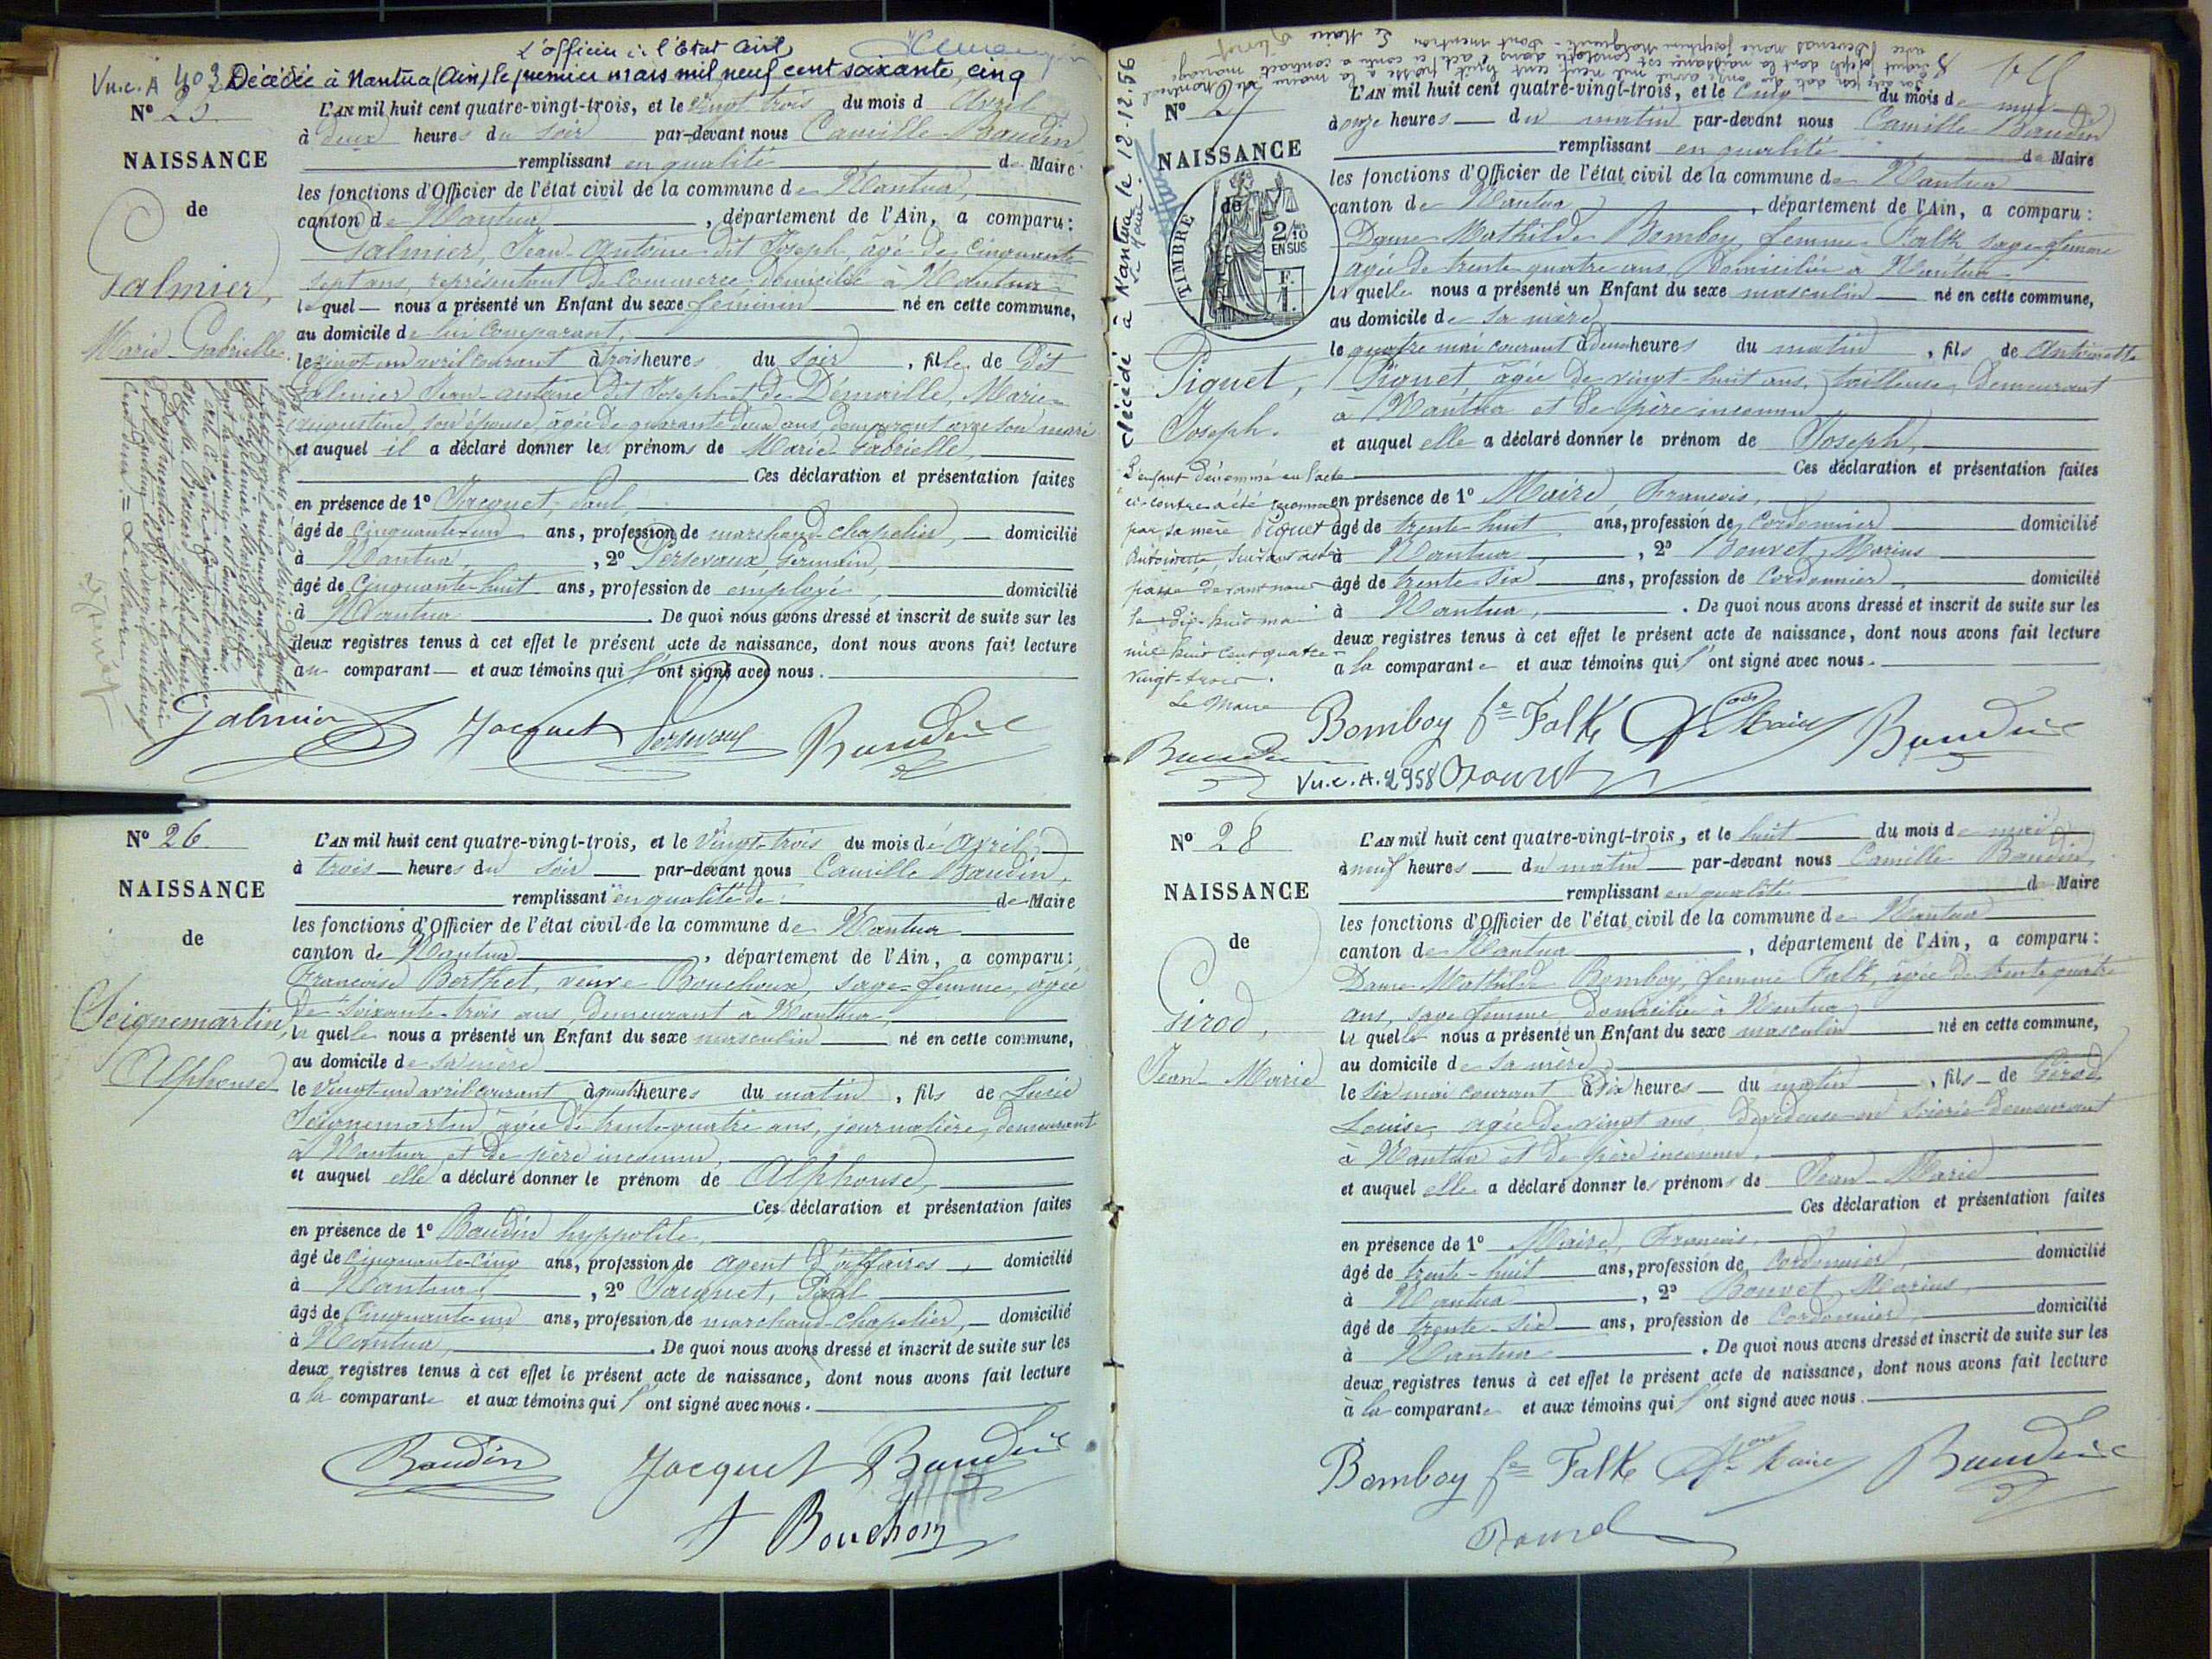 L'officier de l'Etat Civil,
Vu.c. A 403 Décédée à Nantua (Ain) le premier mars mil neuf cent soixante cinq
N° 25
NAISSANCE
de
Galmier,
Marie Gabrielle
L'AN mil huit cent quatre-vingt-trois, et le vingt trois du mois d'Avril
à deux heures du soir par-devant nous Camille Baudin
remplissant en qualité de Maire
les fonctions d'Officier de l'état civil de la commune de Nantua,
canton de Nantua, département de l'Ain, a comparu:
Galmier, Jean-Antoine dit Joseph, âgé de cinquante
sept ans, représentant de commerce, domicilié à Nantua
lequel nous a présenté un Enfant du sexe féminin né en cette commune,
au domicile de lui comparant,
le vingt-un avril courant à trois heures du soir, fille de dit
Galmier Jean-Antoine dit Joseph et de Démaille, Marie-
Augustine, son épouse, âgée de quarante deux ans, demeurant avec son mari
et auquel il a déclaré donner les prénoms de Marie Gabrielle,
Ces déclaration et présentation faites
en présence de 1° Jacquet, Paul,
âgé de cinquante-un ans, profession de marchand-chapelier, domicilié
à Nantua, 2° Persevaux, Germain,
âgé de cinquante-huit ans, profession de employé, domicilié
à Nantua. De quoi nous avons dressé et inscrit de suite sur les
deux registres tenus à cet effet le présent acte de naissance, dont nous avons fait lecture
au comparant et aux témoins qui l'ont signé avec nous.
Galmier Jacquet Persevaux Baudin
N° 26
NAISSANCE
de
Seignemartin,
Alphonse
L'AN mil huit cent quatre-vingt-trois, et le vingt-trois du mois d'Avril
à trois heures du soir par-devant nous Camille Baudin,
remplissant en qualité de de Maire
les fonctions d'Officier de l'état civil de la commune de Nantua
canton de Nantua, département de l'Ain, a comparu:
Françoise Berthet, veuve Bouchoux, sage-femme, âgée
de soixante-trois ans, demeurant à Nantua,
laquelle nous a présenté un Enfant du sexe masculin né en cette commune,
au domicile de sa mère
le vingt-un avril courant à quatre heures du matin, fils de Lucie
Seignemartin, âgée de trente-quatre ans, journalière, demeurant
à Nantua et de père inconnu,
et auquel elle a déclaré donner le prénom de Alphonse,
Ces déclaration et présentation faites
en présence de 1° Baudin hyppolite,
âgé de cinquante-cinq ans, profession de agent d'affaires, domicilié
à Nantua, 2° Jacquet, Paul
âgé de cinquante-un ans, profession de marchand-chapelier, domicilié
à Nantua, De quoi nous avons dressé et inscrit de suite sur les
deux registres tenus à cet effet le présent acte de naissance, dont nous avons fait lecture
à la comparante et aux témoins qui l'ont signé avec nous.
Baudin Jacquet Baudin
f Bouchoux
décédé à Nantua le 12.12.56
Le Maire
N° 27
NAISSANCE
de
TIMBRE
2/10
EN SUS
F.
1.
Piquet,
Joseph.
L'enfant dénommé en l'acte
ci-contre a été reconnu
par sa mère Piquet
Antoinette, suivant acte
passé devant nous
le dix-huit mai
mil huit cent quatre-
vingt-trois.
Le Maire
Baudin
L'AN mil huit cent quatre-vingt-trois, et le cinq du mois de mai
à onze heures du matin par-devant nous Camille Baudin
remplissant en qualité de Maire
les fonctions d'Officier de l'état civil de la commune de Nantua
canton de Nantua, département de l'Ain, a comparu:
Dame Mathilde Bomboy, femme Falk, sage-femme
âgée de trente quatre ans, domiciliée à Nantua
laquelle nous a présenté un Enfant du sexe masculin né en cette commune,
au domicile de sa mère
le quatre mai courant à deux heures du matin, fils de Antoinette
Piquet, âgée de vingt-huit ans, tailleuse, demeurant
à Nantua et de père inconnu
et auquel elle a déclaré donner le prénom de Joseph,
Ces déclaration et présentation faites
en présence de 1° Maire, François,
âgé de trente-huit ans, profession de cordonnier domicilié
à Nantua, 2° Bouvet, Marius
âgé de trente six ans, profession de cordonnier, domicilié
à Nantua, De quoi nous avons dressé et inscrit de suite sur les
deux registres tenus à cet effet le présent acte de naissance, dont nous avons fait lecture
à la comparante et aux témoins qui l'ont signé avec nous.
Bomboy fe Falk Maire Baudin
Vu.c.A.2958
N° 28
NAISSANCE
de
Girod,
Jean-Marie
L'AN mil huit cent quatre-vingt-trois, et le huit du mois de mai
à neuf heures du matin par-devant nous Camille Baudin,
remplissant en qualité de Maire
les fonctions d'Officier de l'état civil de la commune de Nantua
canton de Nantua, département de l'Ain, a comparu:
Dame Mathilde Bomboy, femme Falk, âgée de trente quatre
ans, sage femme, domiciliée à Nantua
laquelle nous a présenté un Enfant du sexe masculin né en cette commune,
au domicile de sa mère,
le six mai courant à dix heures du matin, fils de Girod
Louise, âgée de vingt ans, dévideuse en soierie demeurant
à Nantua et de père inconnu.
et auquel elle a déclaré donner les prénoms de Jean-Marie
Ces déclaration et présentation faites
en présence de 1° Maire, François,
âgé de trente-huit ans, profession de cordonnier, domicilié
à Nantua, 2° Bouvet, Marius,
âgé de trente-six ans, profession de cordonnier, domicilié
à Nantua. De quoi nous avons dressé et inscrit de suite sur les
deux registres tenus à cet effet le présent acte de naissance, dont nous avons fait lecture
à la comparante et aux témoins qui l'ont signé avec nous.
Bomboy fe Falk Maire Baudin